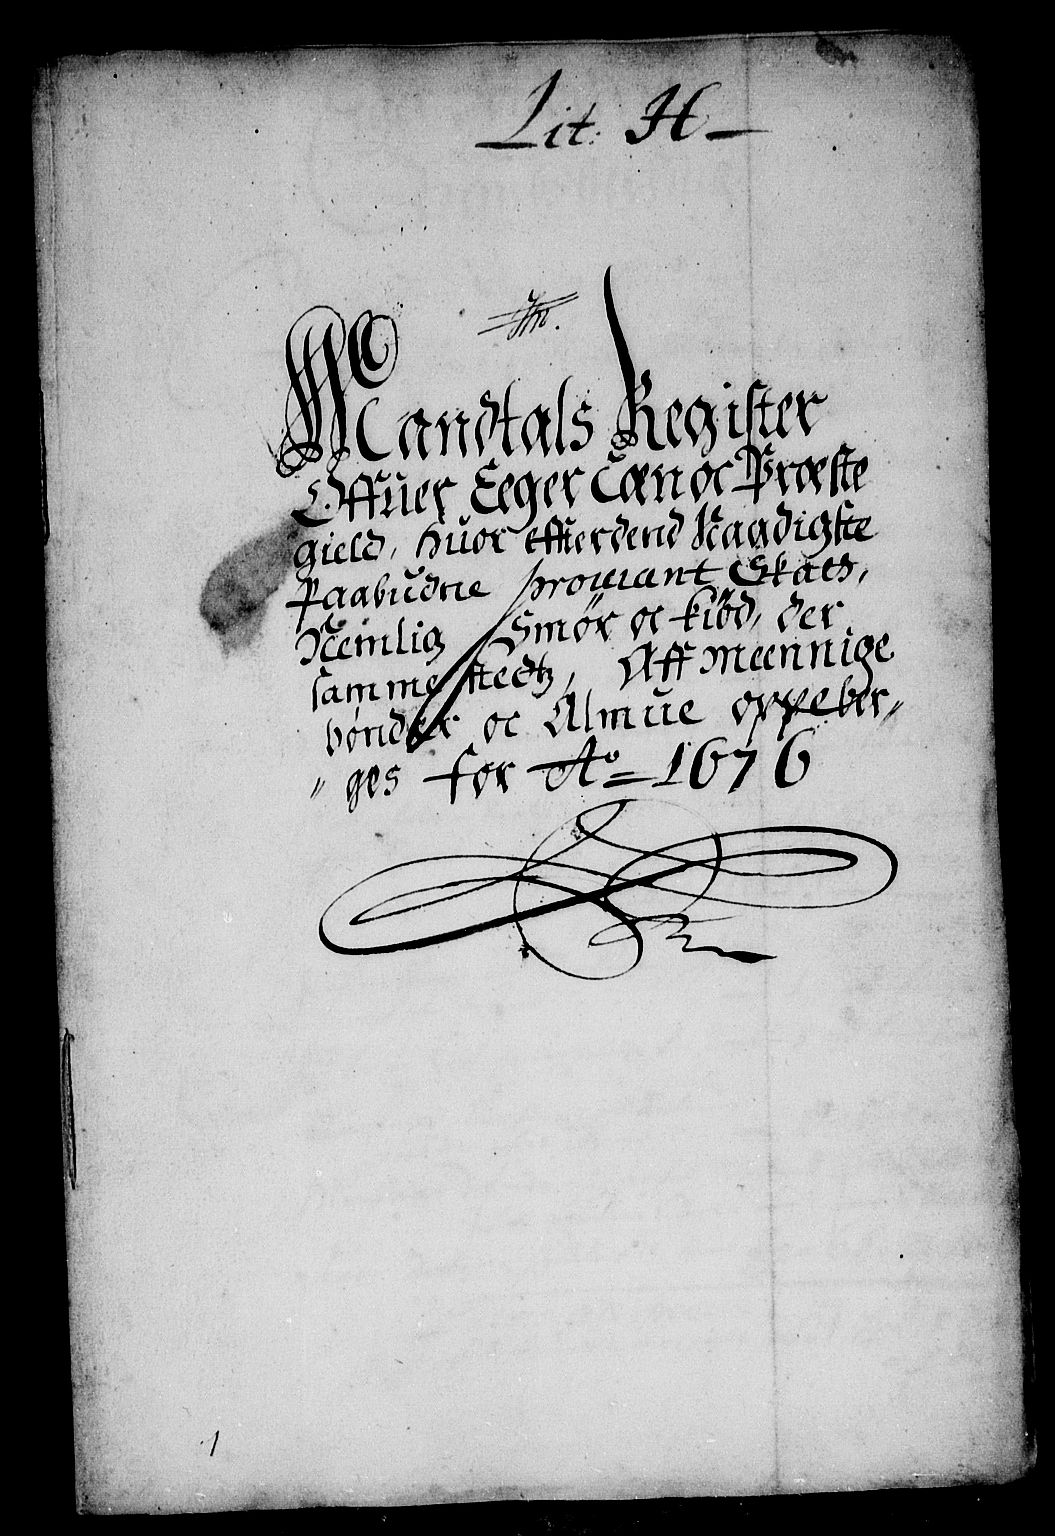 Lit: H
Mandtals Register
Offuer Eeger Læn oc Præste
gield, huor effterdend Naadigste
Paabudne prowiant Skatt,
Nemlig Smør oc kiød, der
sammestedtz, Aff meennige
bønder oc Almue oppeber„
„ges for Ao 1676
1